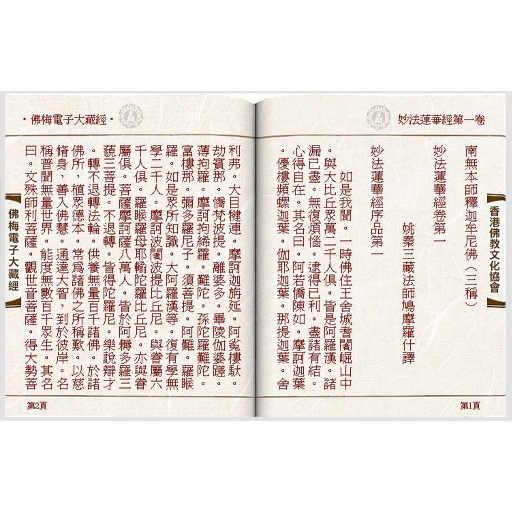 妙法蓮華經第一卷
南無本師釋迦牟尼佛（三稱）
妙法蓮華經卷第一
姚秦三藏法師鳩摩羅什譯
妙法蓮華經序品第一
如是我聞。一時佛住王舍城耆闍崛山中
。與大比丘眾萬二千人俱。皆是阿羅漢。諸
漏已盡。無復煩惱。逮得己利。盡諸有結。
心得自在。其名曰。阿若憍陳如。摩訶迦葉
。優樓頻螺迦葉。伽耶迦葉。那提迦葉。舍
第1頁
香港佛教文化協會
佛梅電子大藏經
利弗。大目犍連。摩訶迦旃延。阿㝹樓馱。
劫賓那。憍梵波提。離婆多。畢陵伽婆蹉。
薄拘羅。摩訶拘絺羅。難陀。孫陀羅難陀。
富樓那。彌多羅尼子。須菩提。阿難。羅睺
羅。如是眾所知識。大阿羅漢等。復有學無
學二千人。摩訶波闍波提比丘尼。與眷屬六
千人俱。羅睺羅母耶輸陀羅比丘尼。亦與眷
屬俱。菩薩摩訶薩八萬人。皆於阿耨多羅三
藐三菩提。不退轉。皆得陀羅尼。樂說辯才
。轉不退轉法輪。供養無量百千諸佛。於諸
佛所。植眾德本。常為諸佛之所稱歎。以慈
脩身。善入佛慧。通達大智。到於彼岸。名
稱普聞無量世界。能度無數百千眾生。其名
曰。文殊師利菩薩。觀世音菩薩。得大勢菩
第2頁
佛梅電子大藏經